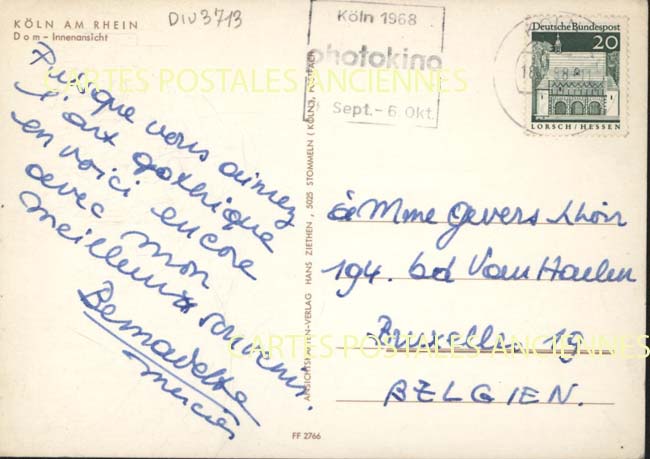 KÖLN AM RHEIN
Dom - Innenansicht
DIV3713
Puisque vous aimez
l'art gothique
en voici encore
avec mon
meilleur souvenir.
Bernadette
Köln 1968
photokina
Sept. - 6. Okt.
Deutsche Bundespost
20
LORSCH / HESSEN
à Mme Gevers
194. bd Van Haelen
Bruxelles 19
BELGIEN.
ANSICHTSKARTEN-VERLAG HANS ZIETHEN, 5025 STOMMELN (KÖLN), POSTFACH
FF 2766
CARTES POSTALES ANCIENNES
CARTES POSTALES ANCIENNES